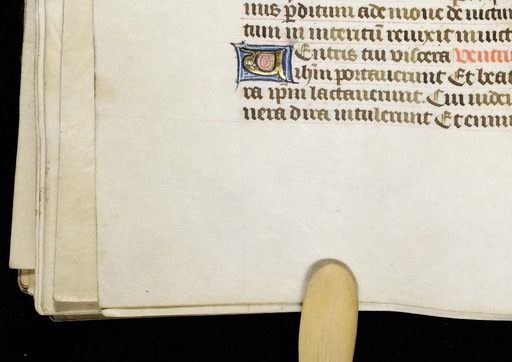 nus p̄ditum ade moue de uictu
tum in interitū reuixit inuict
Uentris tui viscera Ventri
ihm̄ portauerunt Et beat
ra ip̄m lactauerunt. Cui iudei
nera dira intulerunt Et enim